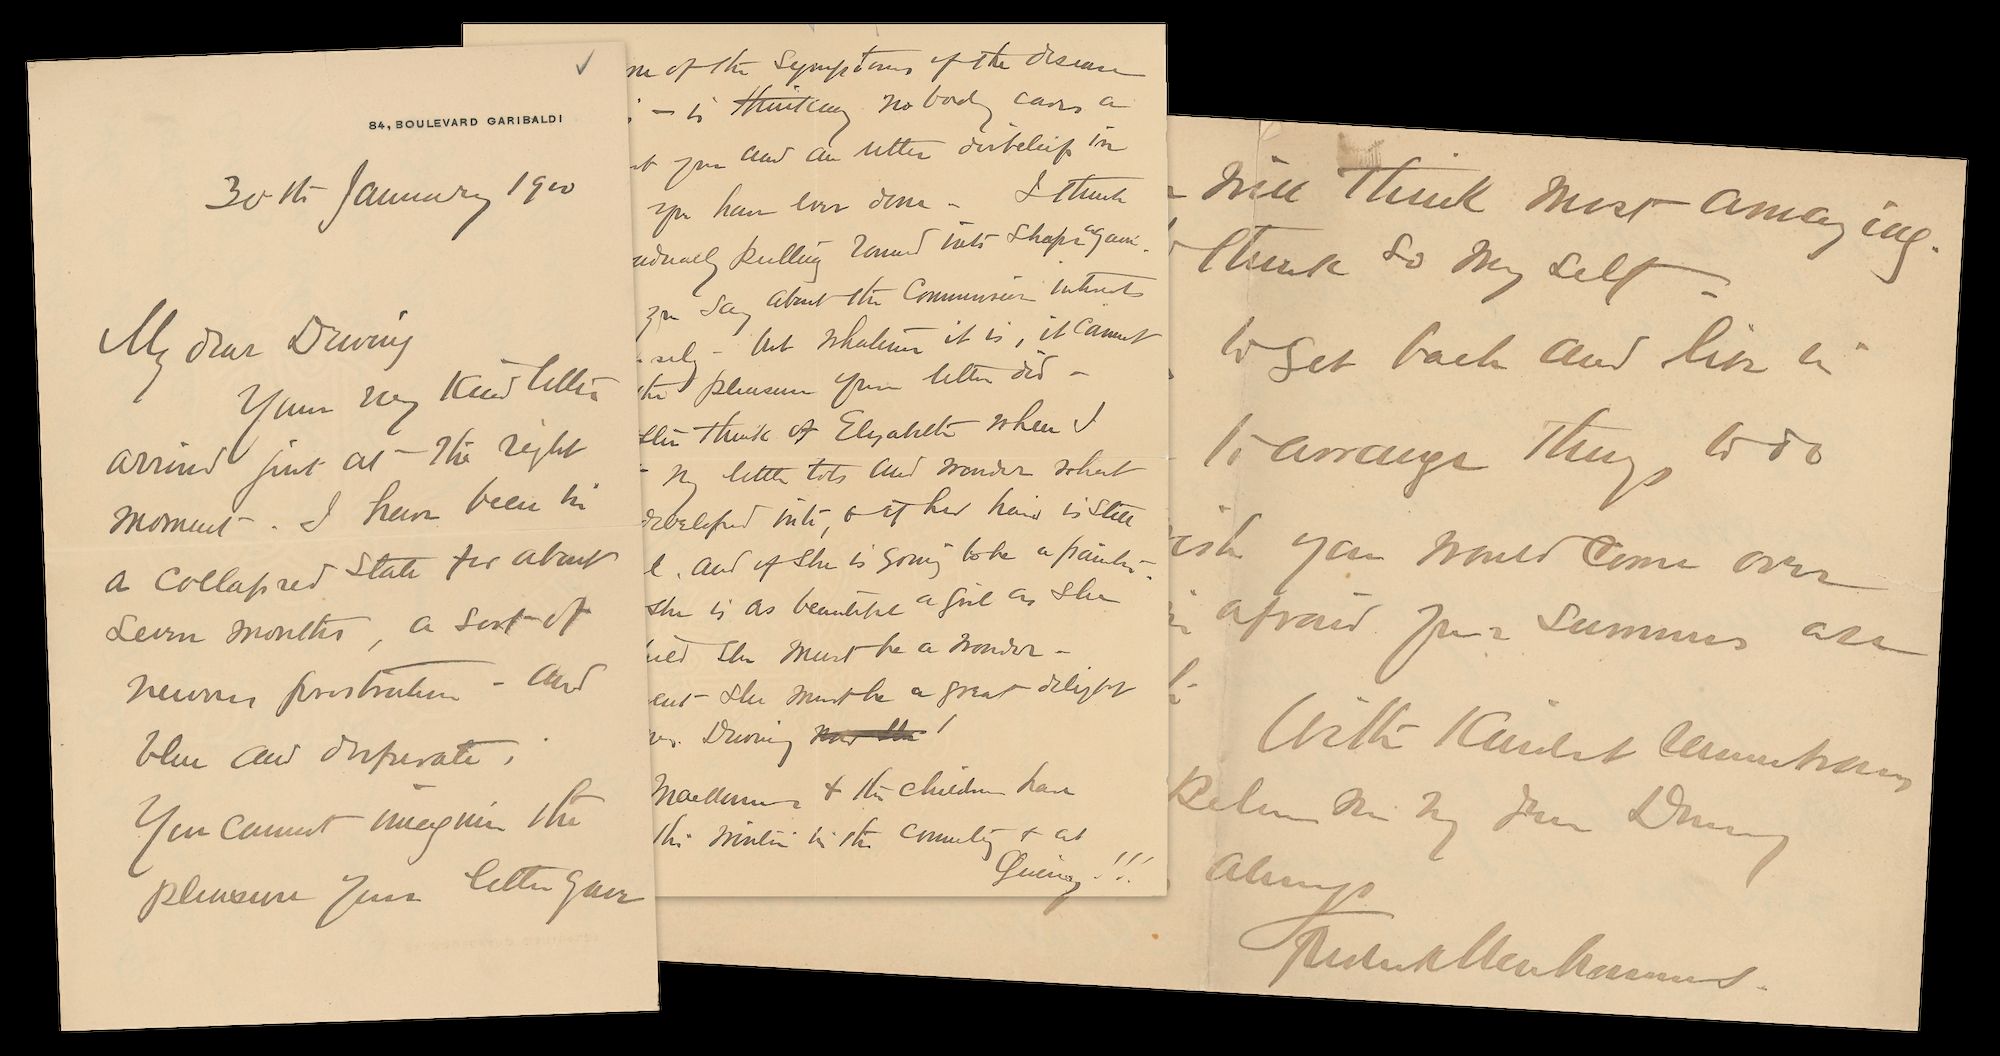 84, BOULEVARD GARIBALDI
30th January 1900
My dear Dewing
Your very kind letter
arrived just at the right
moment. I have been in
a collapsed state for about
seven months, a sort of
nervous prostration - and
blue and desperate.
You cannot imagine the
pleasure your letter gave
of the symptoms of the disease
- is thinking nobody cares a
you and an utter disbelief in
you have ever done - I think
pulling round into shape again.
you say about the Commission interests
but whatever it is, it cannot
pleasure your letter did -
think of Elizabeth when I
my little tots and wonder what
developed into, & if her hair is still
and if she is going to be a painter.
she is as beautiful a girl as she
she must be a wonder -
she must be a great delight
Dewing
MacMonnies & the children have
the winter in the country & at
Giverny!!!
will think most amazing.
think so myself -
to get back and live in
to arrange things to do
you would come over
afraid your summers are
With kindest
me my dear Dewing
always
Frederick MacMonnies.